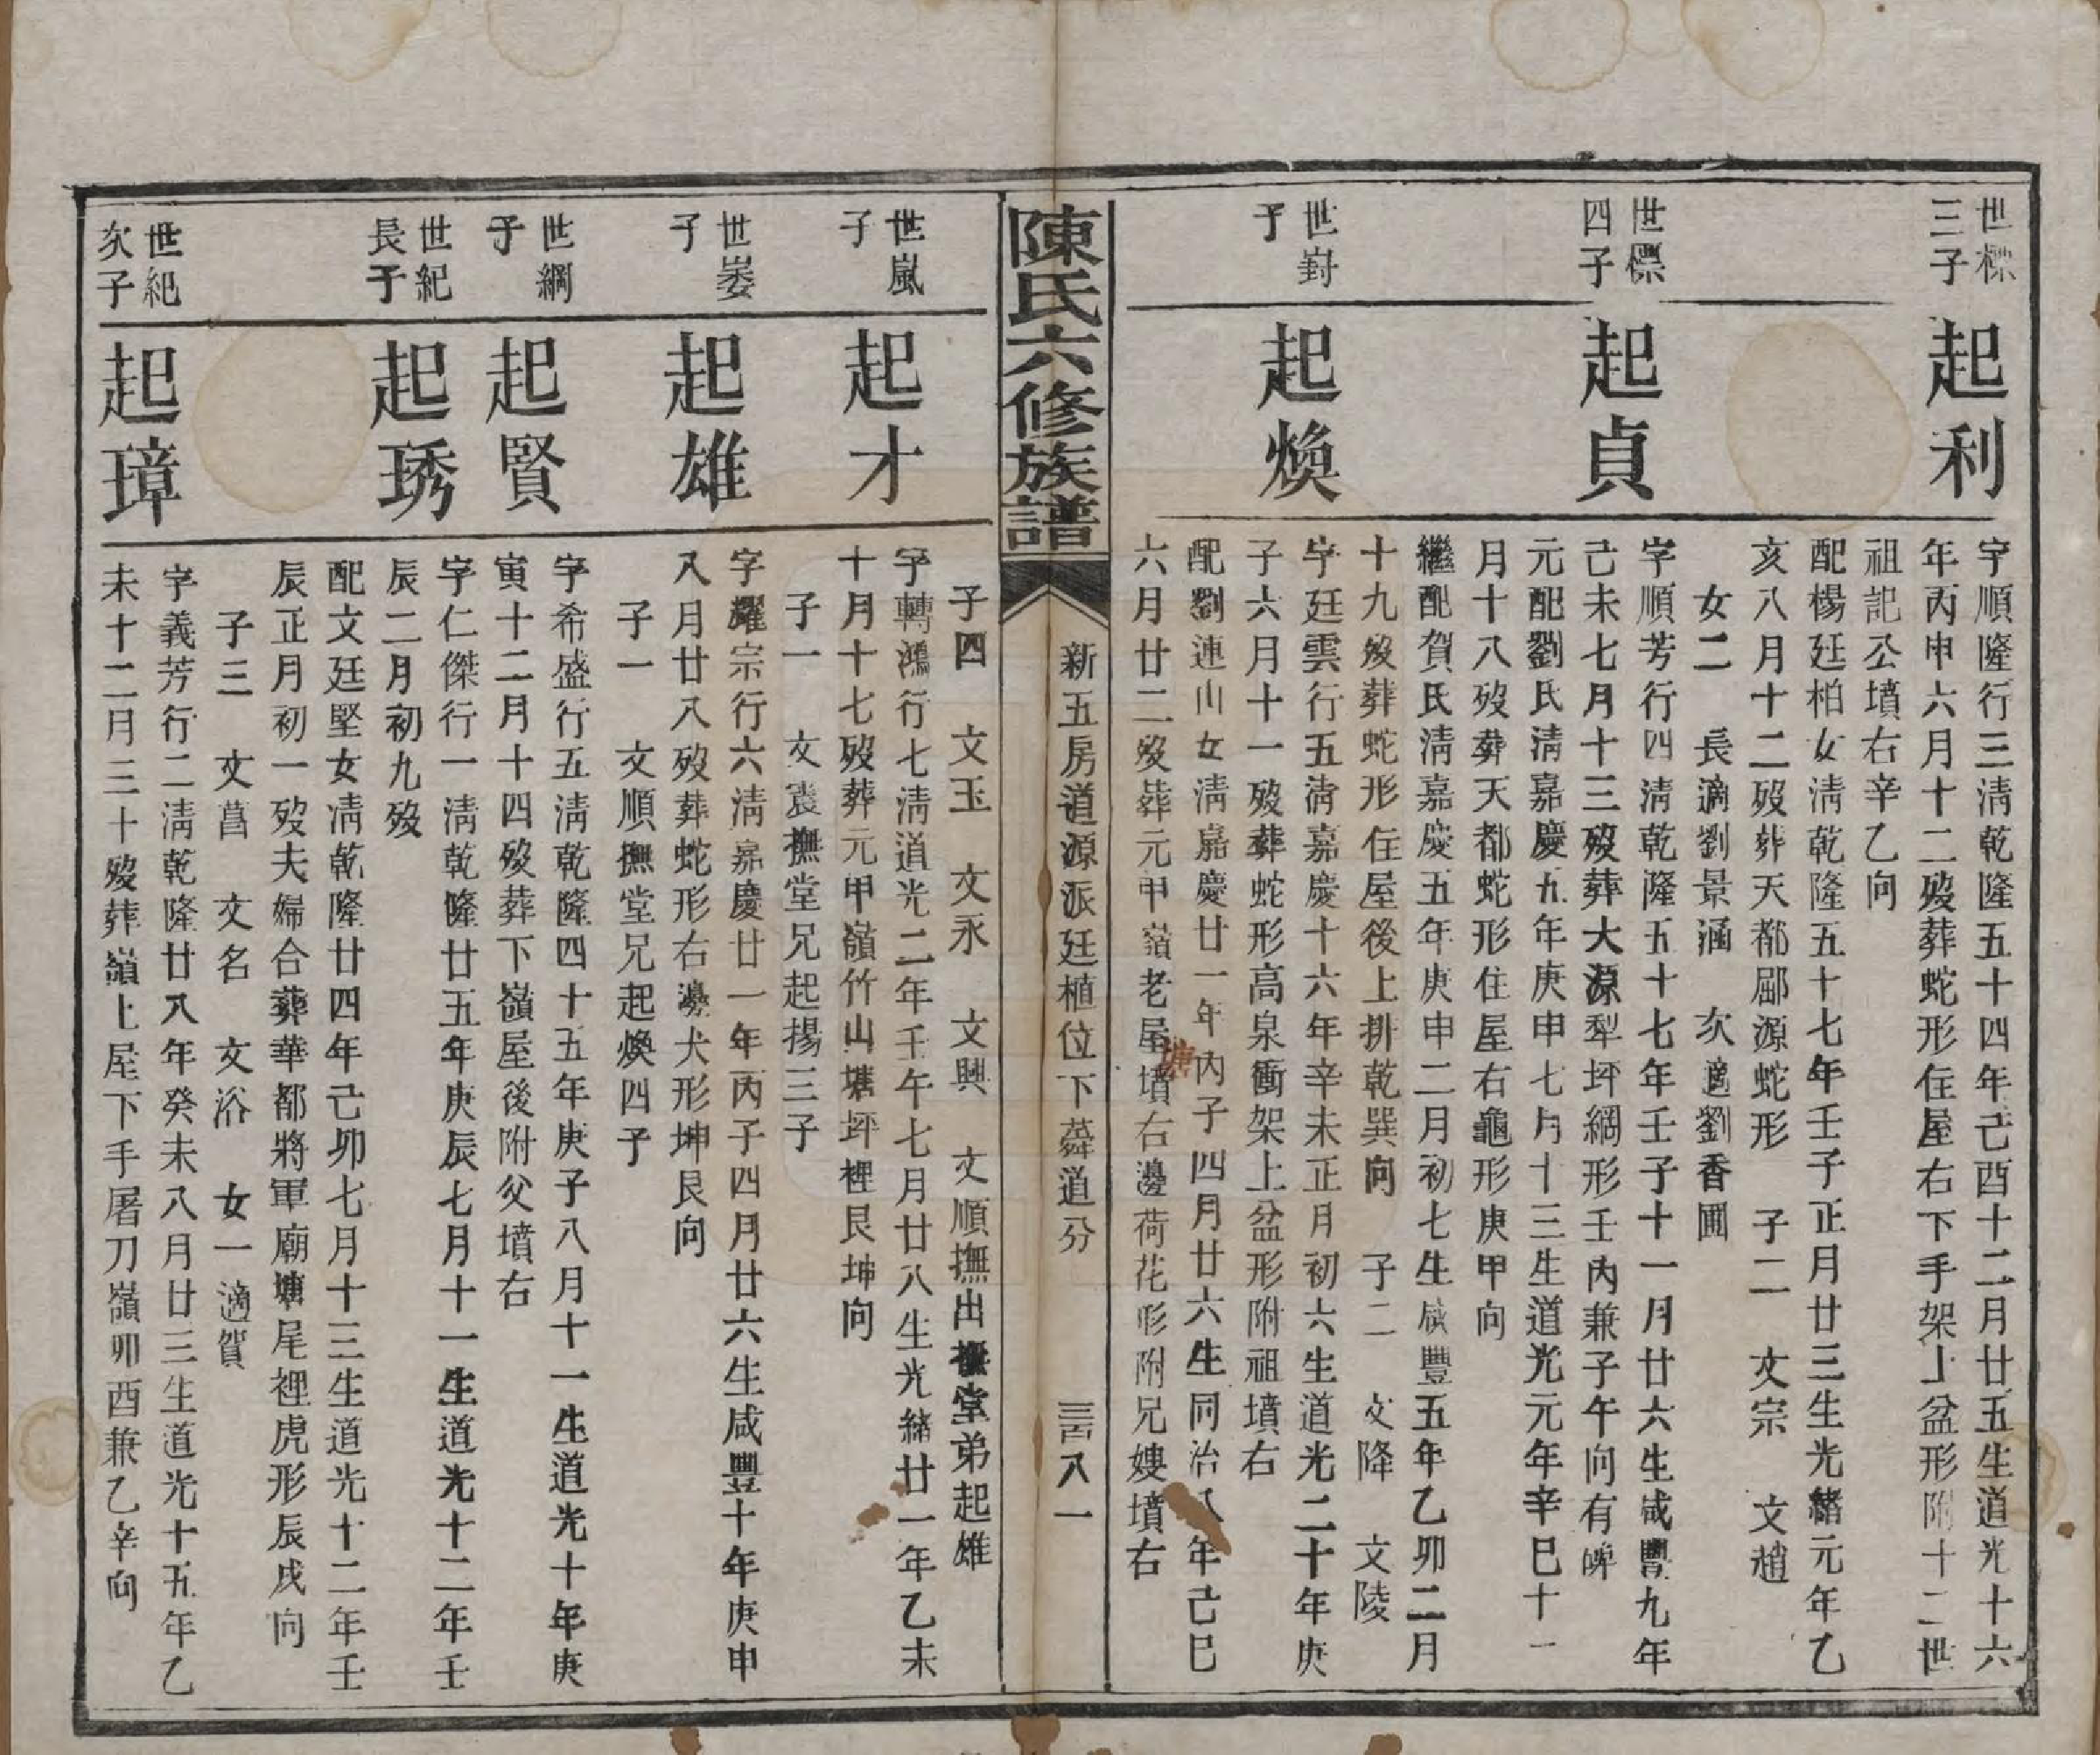 世標
三子
起利
字順隆行三淸乾隆五十四年己酉十二月廿五生道光十六
年丙申六月十二歿葬蛇形住屋右下手架上盆形附十二世
祖記公墳右辛乙向
配楊廷柏女淸乾隆五十七年壬子正月廿三生光緖元年乙
亥八月十二歿葬天都郿源蛇形 子二 文宗 文趙
女二 長適劉景涵 次適劉香圃
世標
四子
起貞
字順芳行四淸乾隆五十七年壬子十一月廿六生咸豐九年
己未七月十三歿葬大源犁坪綱形壬丙兼子午向有碑
元配劉氏淸嘉慶九年庚申七月十三生道光元年辛巳十一
月十八歿葬天都蛇形住屋右龜形庚甲向
繼配賀氏淸嘉慶五年庚申二月初七生咸豐五年乙卯二月
十九歿葬蛇形住屋後上排乾巽向 子二 文降 文陵
世嶎
子
起煥
字廷雲行五淸嘉慶十六年辛未正月初六生道光二十年庚
子六月十一歿葬蛇形高泉衝架上盆形附祖墳右
配劉連山女淸嘉慶廿一年丙子四月廿六生同治八年己巳
六月廿二歿葬元甲嶺老屋墳右邊荷花形附兄嫂墳右
塘
陳氏六修族譜
新五房道源派廷植位下蕣道分
三百八一
子四 文玉 文永 文興 文順撫出撫堂弟起雄
世嵐
子
起才
字轉鴻行七淸道光二年壬午七月廿八生光緖廿一年乙未
十月十七歿葬元甲嶺竹山塘坪裡艮坤向
子一 文震撫堂兄起揚三子
世崣
子
起雄
字耀宗行六淸嘉慶廿一年丙子四月廿六生咸豐十年庚申
八月廿八歿葬蛇形右邊犬形坤艮向
子一 文順撫堂兄起煥四子
世綱
子
起賢
字希盛行五淸乾隆四十五年庚子八月十一生道光十年庚
寅十二月十四歿葬下嶺屋後附父墳右
世紀
長子
起琇
字仁傑行一淸乾隆廿五年庚辰七月十一生道光十二年壬
辰二月初九歿
配文廷堅女淸乾隆廿四年己卯七月十三生道光十二年壬
辰正月初一歿夫婦合葬華都將軍廟塘尾裡虎形辰戌向
子三 文菖 文名 文浴 女一適賀
世紀
次子
起璋
字義芳行二淸乾隆廿八年癸未八月廿三生道光十五年乙
未十二月三十歿葬嶺上屋下手屠刀嶺卯酉兼乙辛向